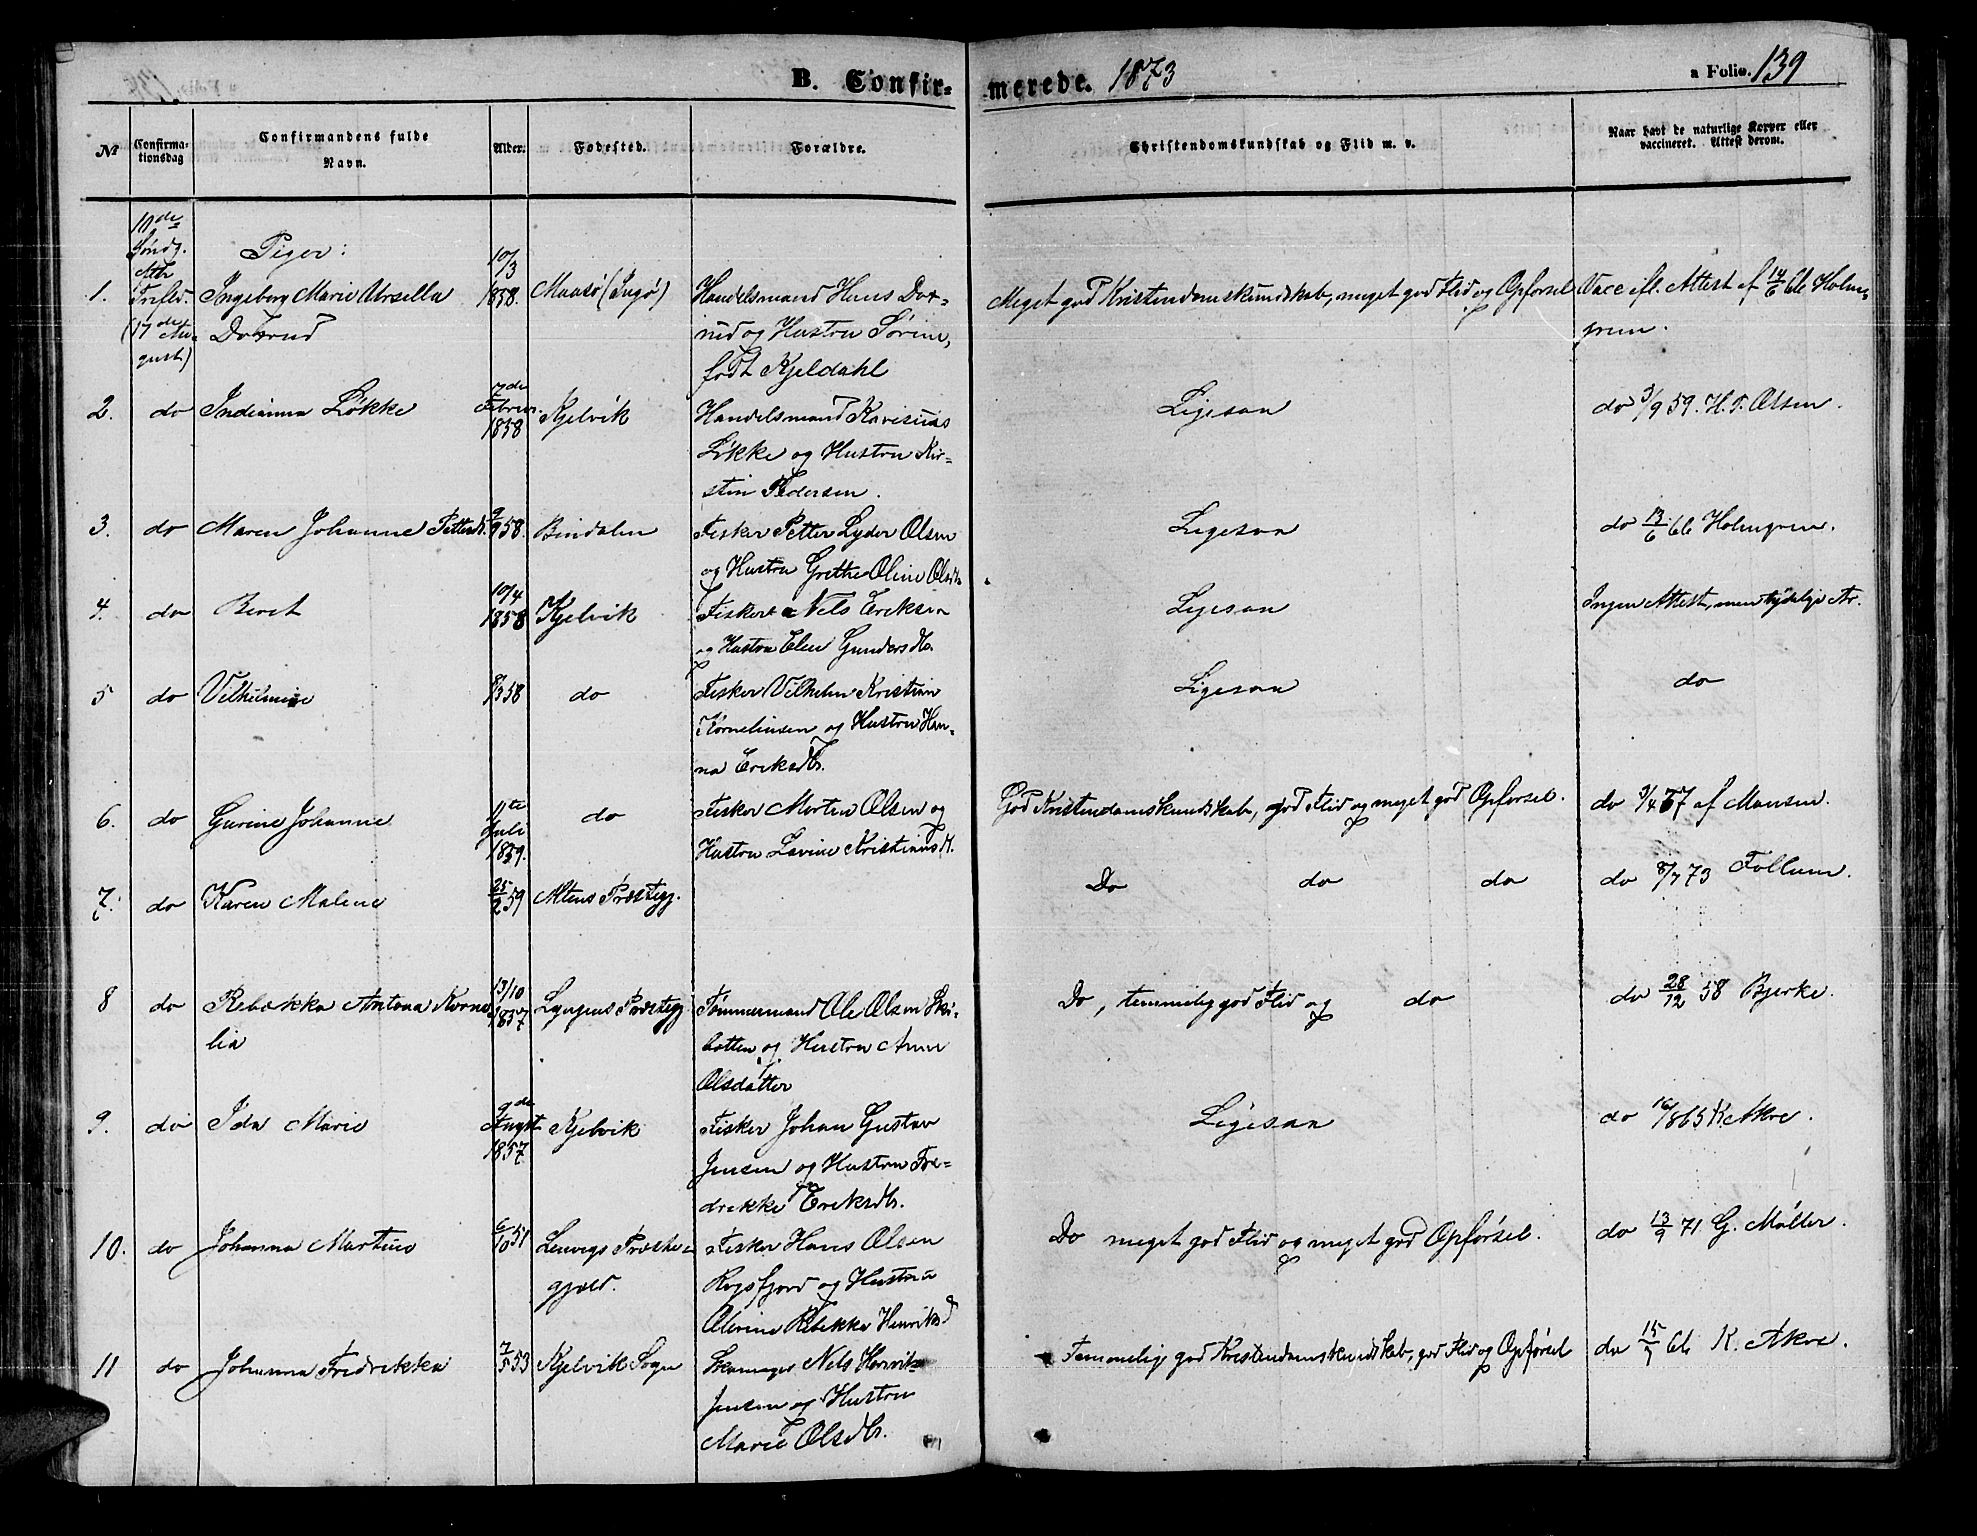 B. Confir-
merede. 1873
a Folio. 139
№
Confirma-
tionsdag
Confirmandens fulde
Navn.
Alder.
Fødested.
Forældre.
Christendomskundskab og Flid m. v.
Naar havt de naturlige Kopper eller
vaccineret. Attest derom.
10de
Søndg.
Trefld.
(17de Au-
gust)
Piger:
1. Ingeborg Marie Ursella
Dobrud
10/3
1858. Maasø (Ingø)
Handelsmand Hans Dob-
rud og Hustru Sørine,
født Kjeldahl
Meget god Kristendomskundskab, meget god Flid og Opførsel
Vacc ifl. Attest af 14/6 66 Holm-
gren.
2. do Indianna Løkke
7de
Februar
1858 Kjelvik
Handelsmand
Løkke og Hustru Kir-
stin Pedersen.
Ligesaa
do 3/9 59. H. P. Olsen.
3. do Maren Johanne Pettersd.
58. Bindalen
Fisker Petter Lyder Olsen
og Hustru Grethe Oline Olsdtr
Ligesaa
do 13/6 66 Holmgren.
4. do Beret
10/4
1858 Kjelvik
Fisker Nels Eriksen
og Hustru Elen Gundersdtr.
Ligesaa
Ingen Attest, men tydelige Ar.
5 do Vilhelmine
58 do
Fisker Vilhelm Kristian
Korneliusen og Hustru Han-
na Eriksdtr.
Ligesaa
do
6. do Gurine Johanne
11te
Juli
1859. do
Fisker Morten Olsen og
Hustru Lavine Kristiansdt.
God Kristendomskundskab, god Flid og meget god Opførsel.
do 3/4 67 af Monsen.
7. do Karen Malene
25/2 59 Altens Præstegj.
Do do do
do 8/7 73 Follum.
8 do Rebekka Antona Korne-
lia
13/10
1857 Lyngens Præstegj.
Tømmermand Ole Olsen Ski-
botten og Hustru Anne
Olsdatter
Do, temmelig god Flid og do
do 28/12 58 Bjerke.
9. do Ida Marie
9de
August
1857 Kjelvik
Fisker Johan Gustav
Jensen og Hustru Fre-
drikke Eriksdtr.
Ligesaa
do 16/8 65 K. Akre.
10. do Johanna Martine
6/10 51 Lenvigs Præste-
gjæld.
Fisker Hans Olsen
Rogsfjord og Hustru
Olevine Rebekka Henriksd
Do meget god Flid og meget god Opførsel.
do 13/9 71 G. Møller.
11 do Johanna Fredrikka
7/5 53 Kjelvik Sogn
Skomager Nels
Jensen og Hustru
Marie Olsdtr.
Temmelig god Kristendomskundskab, god Flid og Opførsel
do 15/7 66 K. Akre.